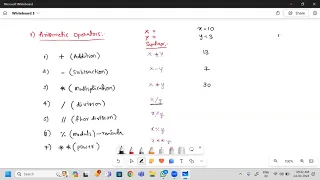 Microsoft Whiteboard
Whiteboard 3
1) Arithmetic Operators:
x =
y =
Syntax:
x=10
y=3
1) + (Addition) x+y 13
2) - (Subtraction) x-y 7
3) * (Multiplication) x*y 30
4) / (division) x/y
5) // (floor division) x//y
6) % (modulus) x%y
7) ** (power) x**y